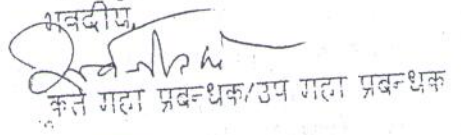 भवदीय,
कृते महा प्रबन्धक/उप महा प्रबन्धक